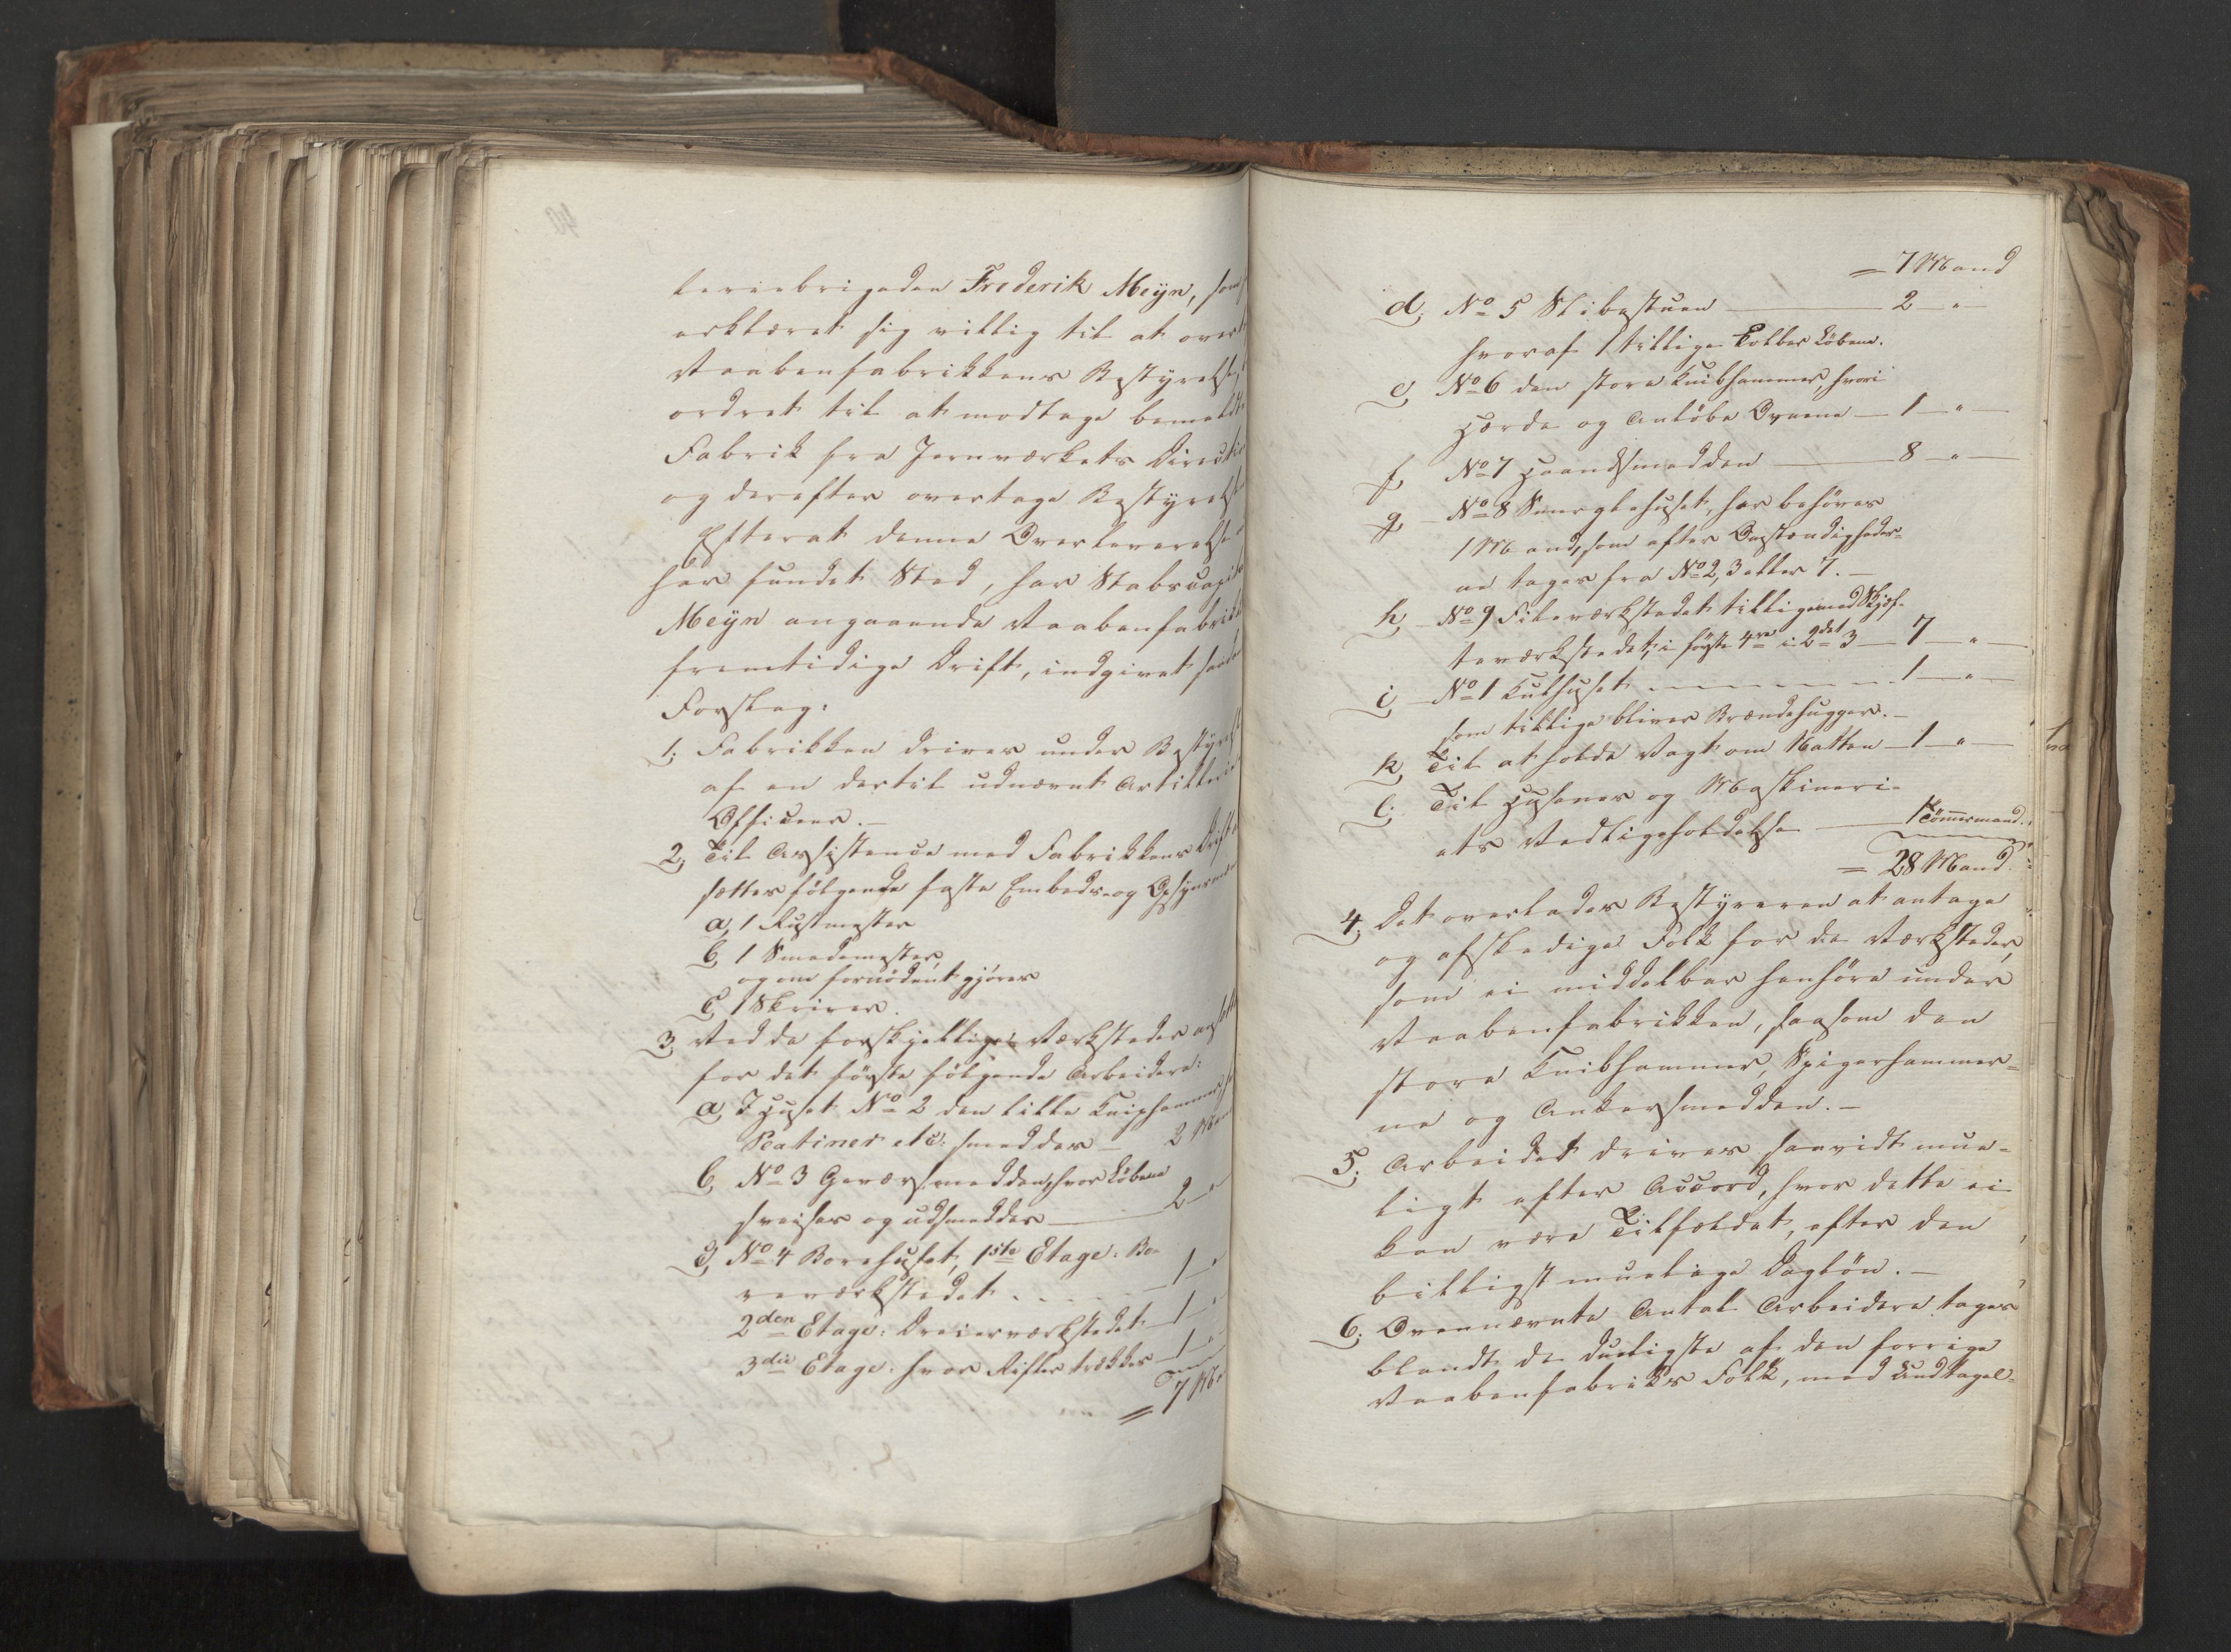 leriebrigaden Frederik Meyn, som
erklæret sig villig til at over
Vaabenfabrikkens Bestyrelse,
ordret til at modtage bemeldte
Fabrik fra Jernværkets Direction
og derefter overtage Bestyrelsen
Efterat denne Overleverelse
har fundet Sted, har Stabscapit
Meyn angaaende Vaabenfabrikk
fremtidige Drift, indgivet saadan
Forslag:
1, Fabrikken drives under Bestyrelse
af en dertil udnævnt Artillerie
Officeer.—
2, Til Assistence med Fabrikkens Drift
sættes følgende faste Embeds- og Opsynsmæn
a, 1 Rustmester
b, 1 Smedemester,
og om fornødent gjøres
c, 1 Skriver.
3, Ved de forskjellige Værksteder ansættes
for det første følgende Arbeidere:
a, I Huset No 2 den lille Kniphammer, h
Platiner etc: smeddes — 2 Man
b, No 3 Geværsmedden, hvor Løbene
sveises og udsmeddes — 2 —"
c, No 4 Borehuset, 1ste Etage: Bo-
reværkstedet . . . . — 1 —"
2den Etage: Dreierværkstedet — 1 —"
3die Etage: hvor Rifler trækkes — 1 —"
= 7 M
= 7 Mand
d, No 5 Slibestuen — 2 —"—
hvoraf 1 tillige kolber Løbene.
e, No 6 den store Knibhammer, hvori
Hærde og Anløbe Ovnene — 1 —"—
f, No 7 Haandsmedden — 8 —"—
g, — No 8 Smerglehuset, her behøves
1 Mand, som efter Omstændigheder-
ne tages fra No 2, 3 eller 7.—
h, — No 9 Fileværkstedet tilligemed Skjæf-
teværkstedet; i første 4re i 2det 3 — 7 —"—
i, — No 1 Kulhuset — — — — 1 —"—
som tillige bliver Brændehugger.—
k, Til at holde Vagt om Natten — 1 —"—
l, Til Husenes og Maskineri-
ets Vedligeholdelse — 1 Tömmermand.
= 28 Mand.
4, Det overlades Bestyreren at antage
og afskedige Folk for de Værksteder,
som ei middelbar henhøre under
Vaabenfabrikken, saasom den
store Knibhammer, Spigerhammer-
ne og Ankersmedden.—
5, Arbeidet drives saavidt mue-
ligt efter Accord, hvor dette ei
kan være Tilfældet, efter den
billigst muelige Dagløn.—
6, Ovennævnte Antal Arbeidere tages
blandt de dueligste af den forrige
Vaabenfabriks Folk, med Undtagel-